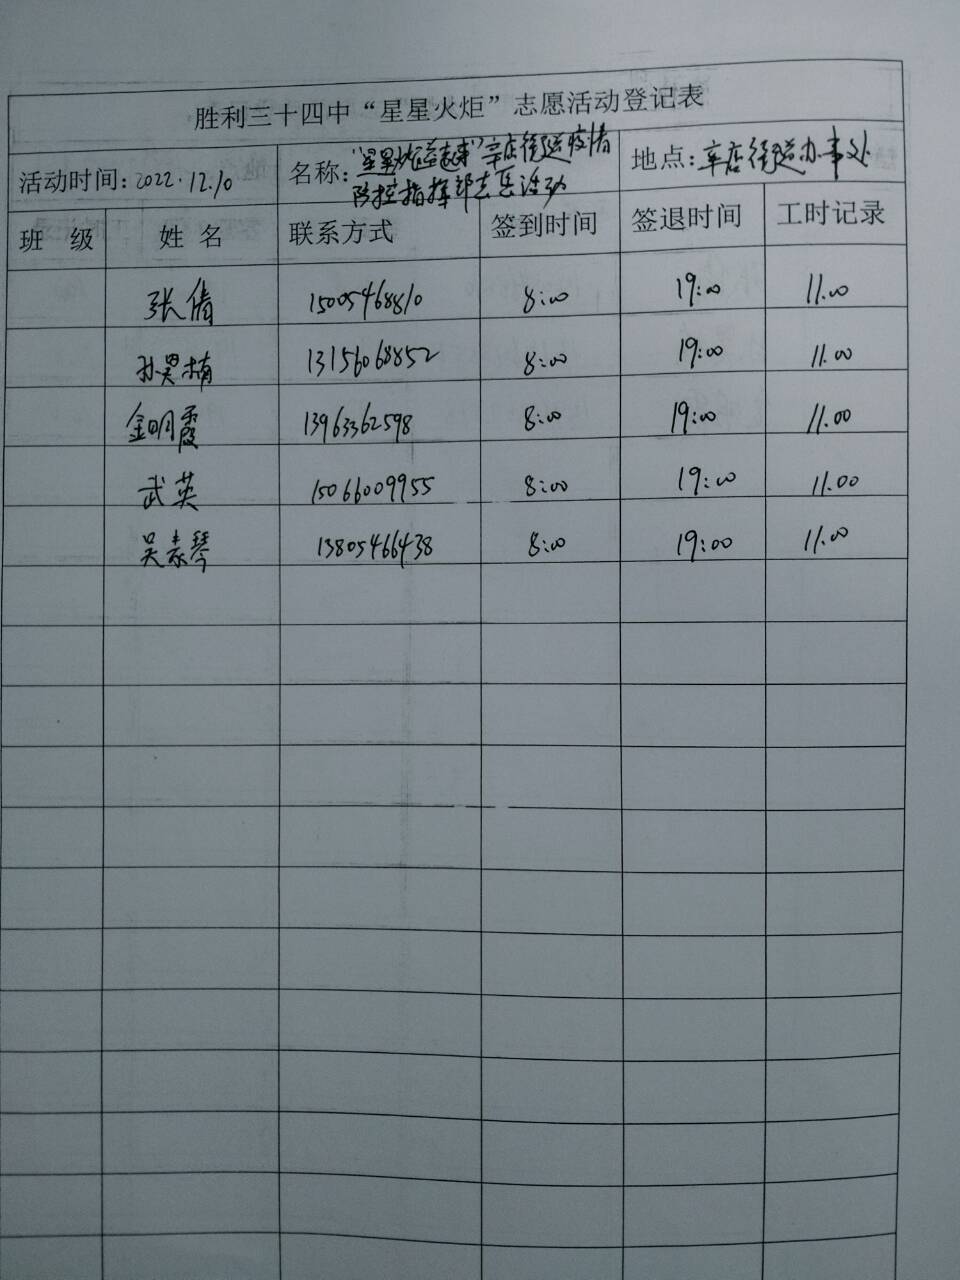 胜利三十四中“星星火炬”志愿活动登记表
活动时间:2022.12.10 名称:“星星火炬益起来”辛店街道疫情 地点:辛店街道办事处
防控指挥部志愿活动
班 级 姓 名 联系方式 签到时间 签退时间 工时记录
张倩 15005468810 8:00 19:00 11.00
孙昊楠 13156068852 8:00 19:00 11.00
金明霞 13963362598 8:00 19:00 11.00
武英 15066009955 8:00 19:00 11.00
吴素琴 13805466438 8:00 19:00 11.00